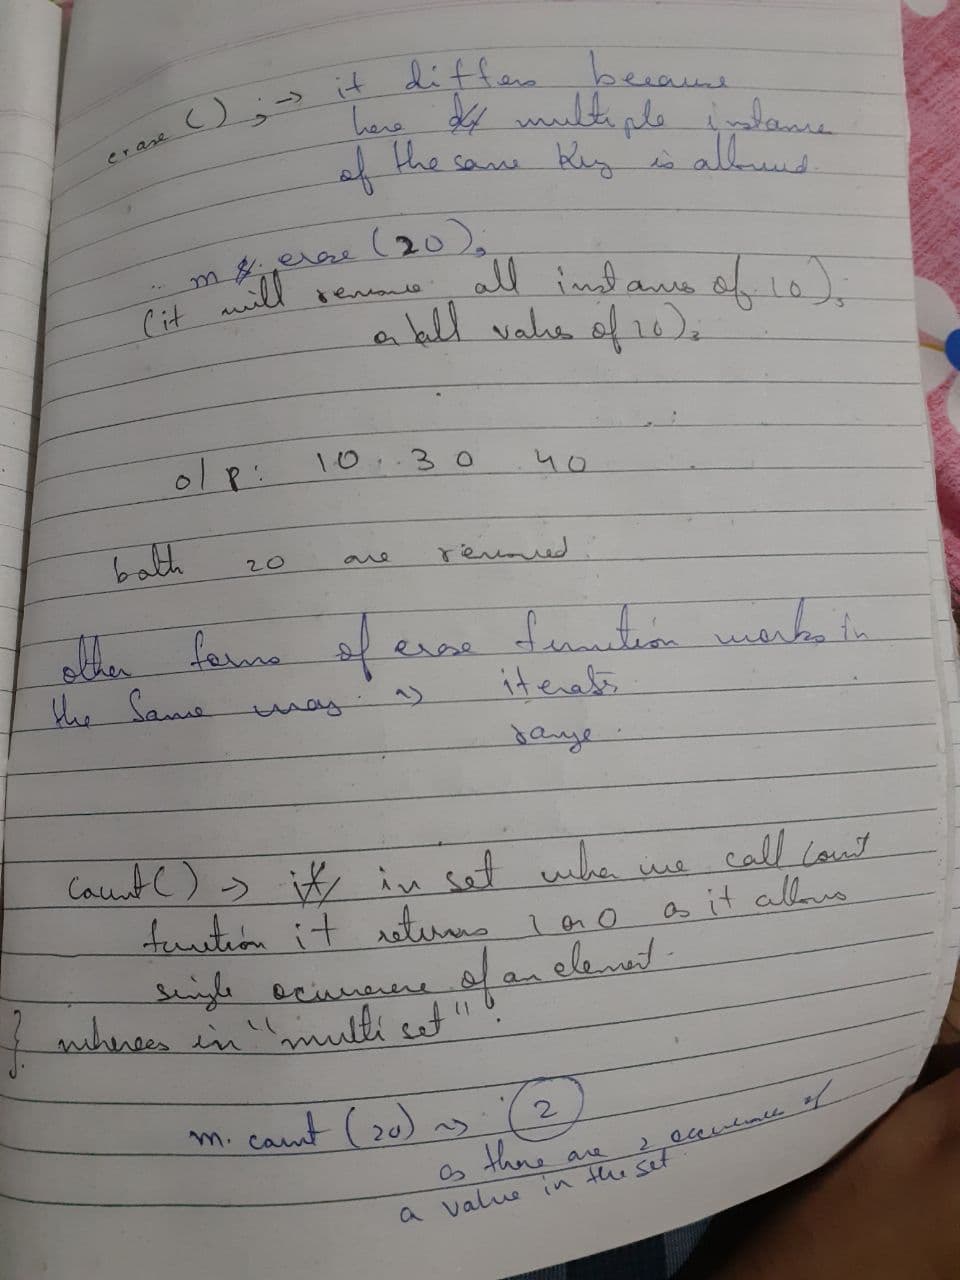 erase () ; → it differs because
here multiple instance
of the same key is allowed.
m . erase (20);
(it will remove all instances of 10);
all values of 10);
o/p: 10 30 40
both 20 are removed.
other forms of erase function works in
the same way → iterator
range
Count() → in set when we call count
function it returns 1 or 0 as it allows
single occurrence of an element.
} whereas in "multi set".
m. count (20) → 2
as there are 2 occurrence of
a value in the set